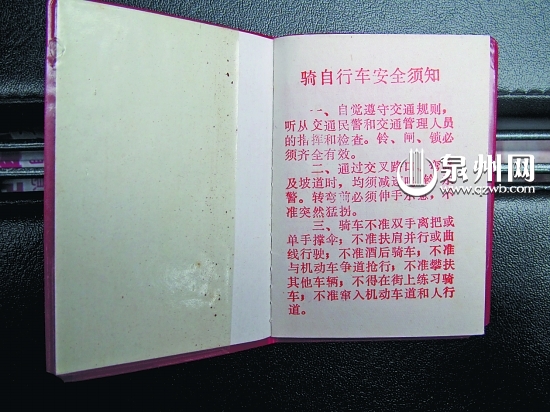 骑自行车安全须知
一、自觉遵守交通规则，
听从交通民警和交通管理人员
的指挥和检查。铃、闸、锁必
须齐全有效。
二、通过交叉路
及坡道时，均须减速
警。转弯前必须伸手示意，不
准突然猛拐。
三、骑车不准双手离把或
单手撑伞；不准扶肩并行或曲
线行驶；不准酒后骑车；不准
与机动车争道抢行；不准攀扶
其他车辆；不得在街上练习骑
车；不准窜入机动车道和人行
道。
泉州网
www.qzwb.com